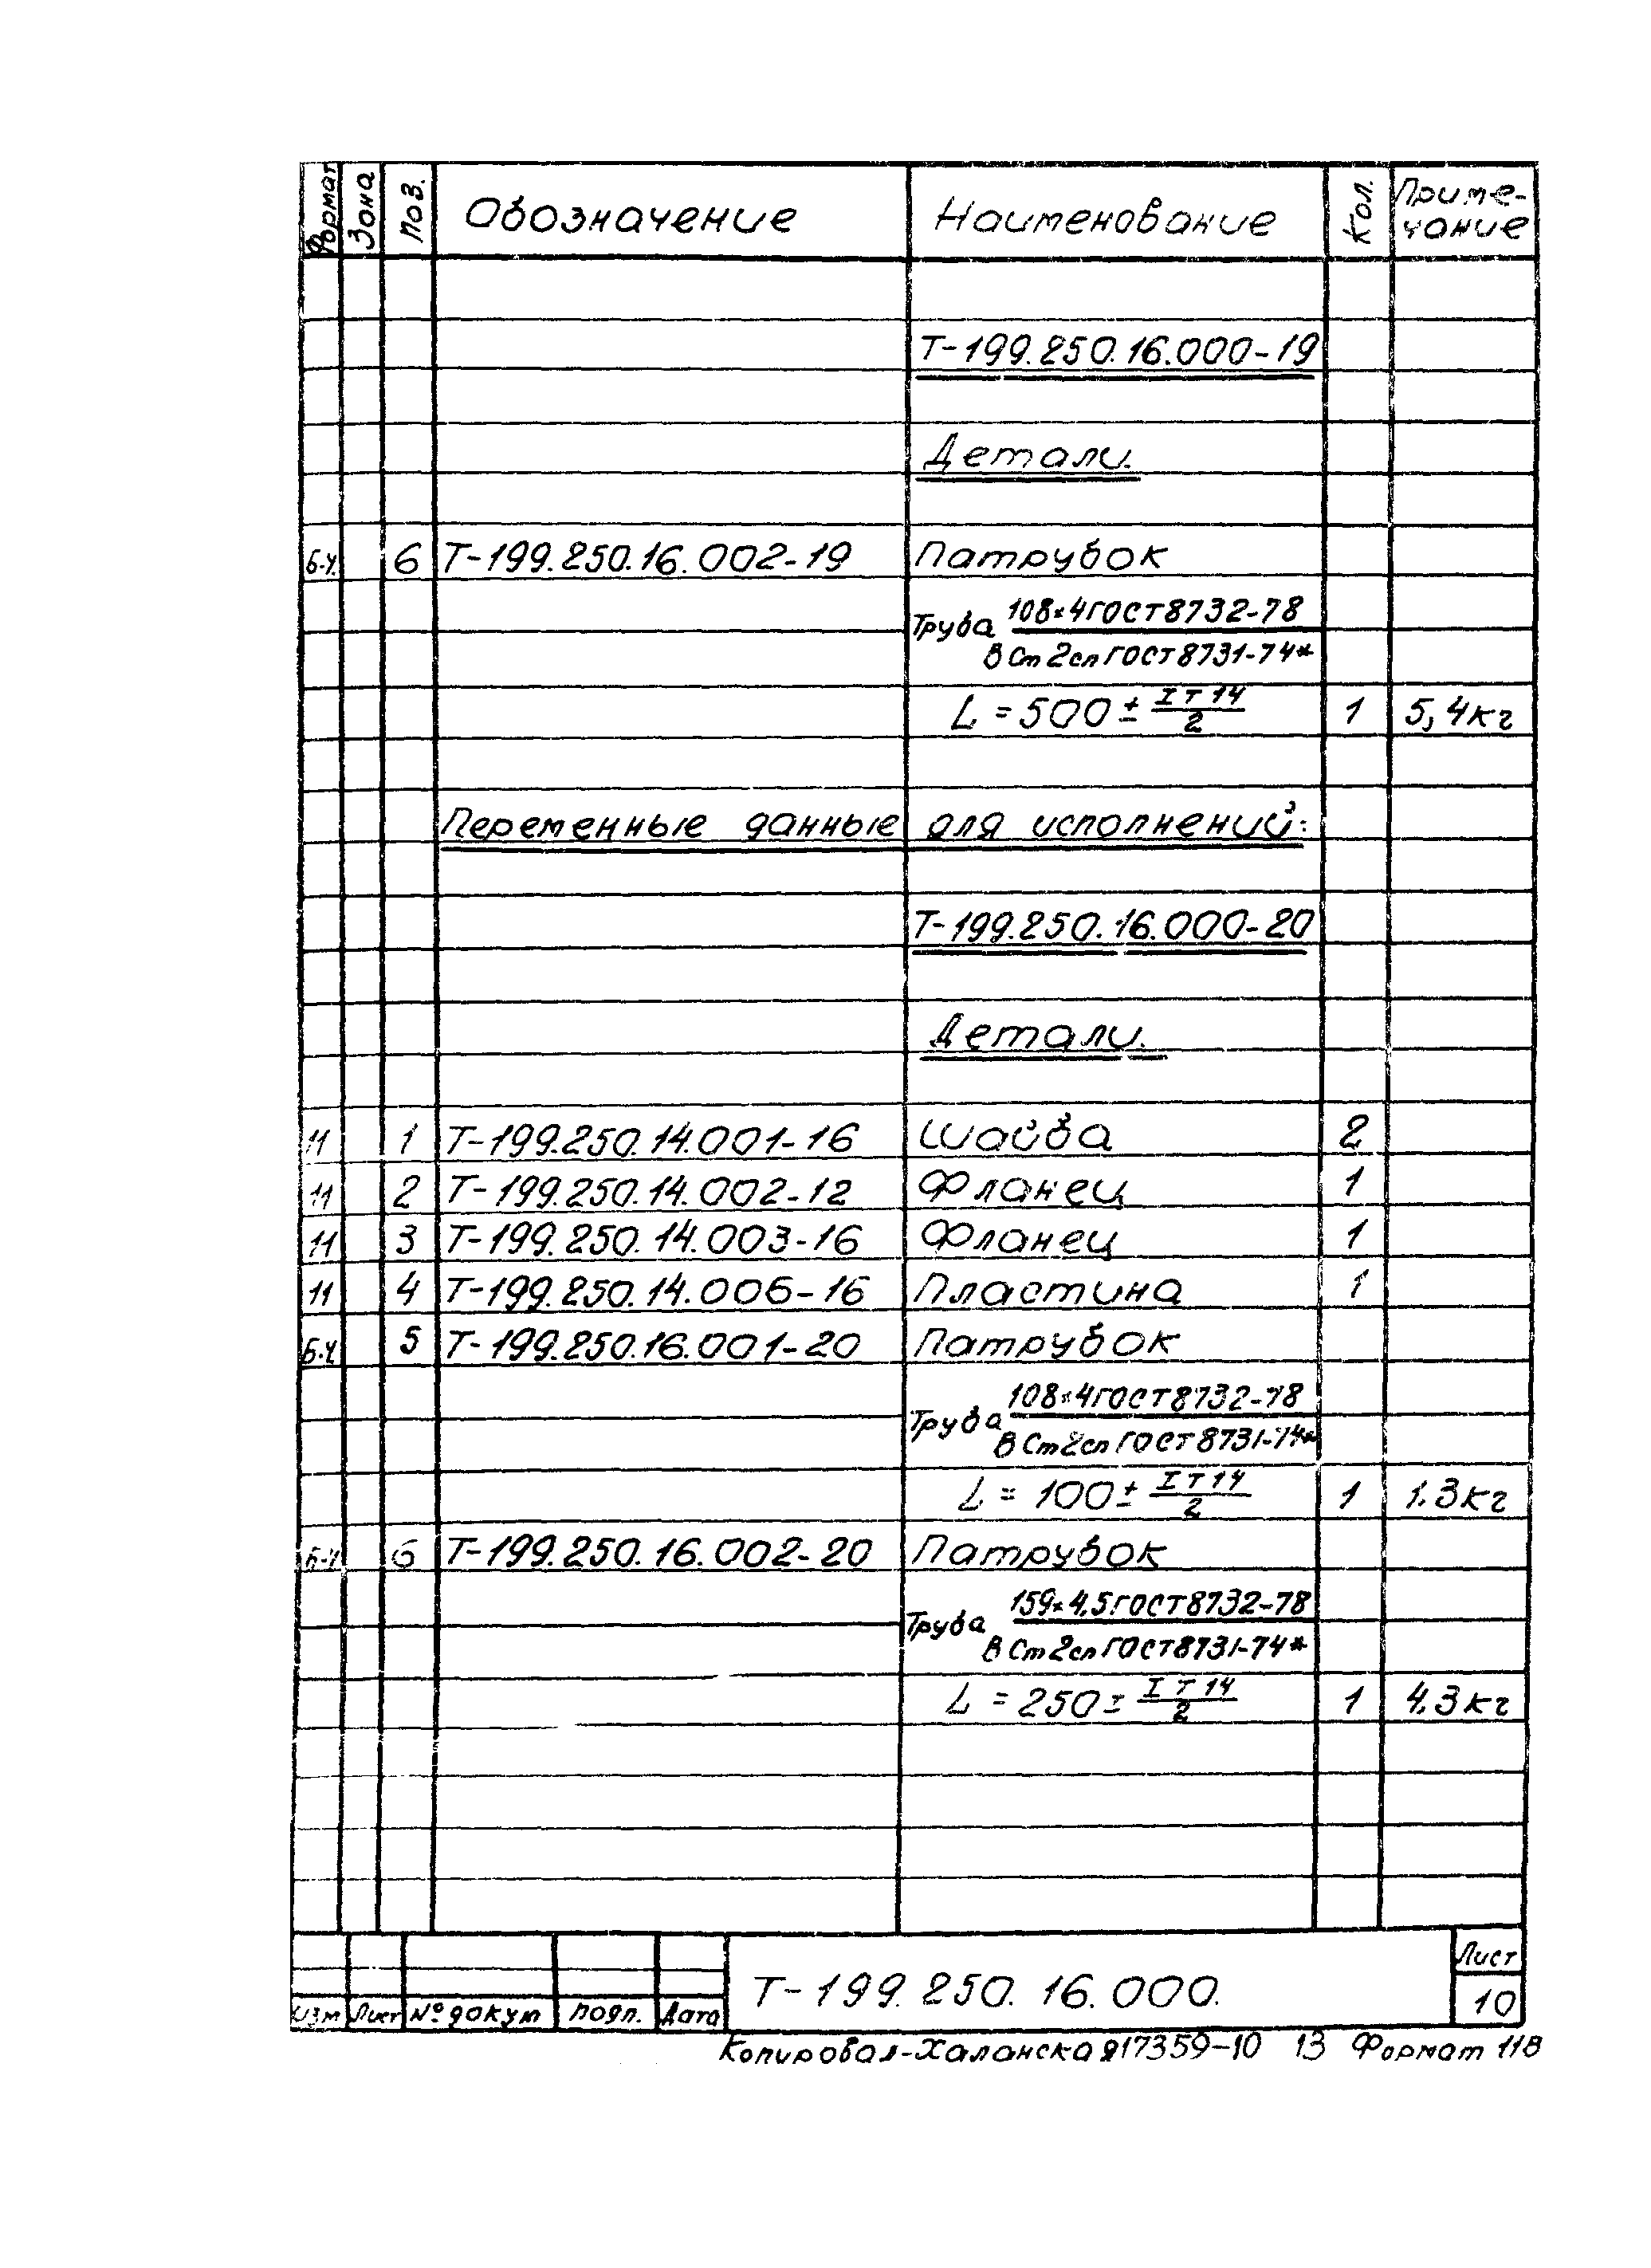 Формат Зона Поз. Обозначение Наименование Кол. Приме-
чание
Т-199.250.16.000-19
Детали.
Б-Ч. 6 Т-199.250.16.002-19 Патрубок
Труба 108×4 ГОСТ 8732-78
В Ст 2сп ГОСТ 8731-74*
L = 500 ± IT14
2
1 5,4кг
Переменные данные для исполнений:
Т-199.250.16.000-20
Детали.
11 1 Т-199.250.14.001-16 Шайба 2
11 2 Т-199.250.14.002-12 Фланец 1
11 3 Т-199.250.14.003-16 Фланец 1
11 4 Т-199.250.14.006-16 Пластина 1
Б-Ч 5 Т-199.250.16.001-20 Патрубок
Труба 108×4 ГОСТ 8732-78
В Ст 2сп ГОСТ 8731-74*
L = 100 ± IT14
2
1 1.3кг
Б-Ч 6 Т-199.250.16.002-20 Патрубок
Труба 159×4.5 ГОСТ 8732-78
В Ст 2сп ГОСТ 8731-74*
L = 250 ± IT14
2
1 4.3кг
Изм Лист № докум Подп. Дата
Т-199.250.16.000.
Лист
10
Копировал-Халанская 17359-10 13 Формат 11В